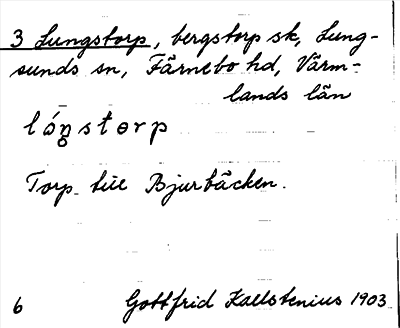 3 Lungstorp, bergstorp sk, Lung-
sunds sn, Färnebo hd, Värm-
lands län
lóŋ̥stɵrp
Torp till Bjurbäcken.
6 Gottfrid Kallstenius 1903